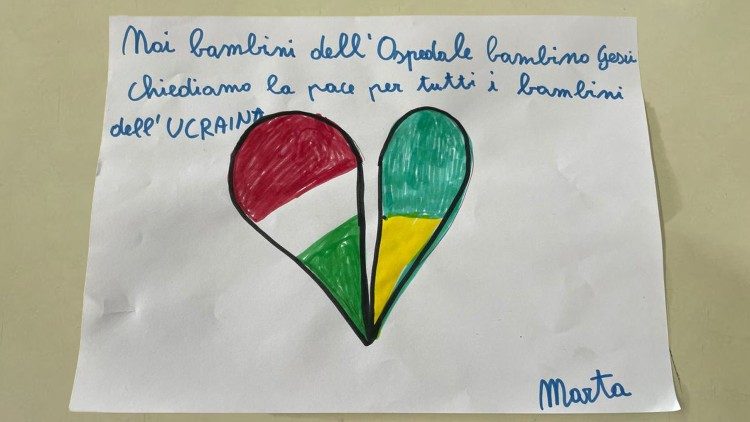 Noi bambini dell'Ospedale bambino Gesù
chiediamo la pace per tutti i bambini
dell'UCRAINA
Marta